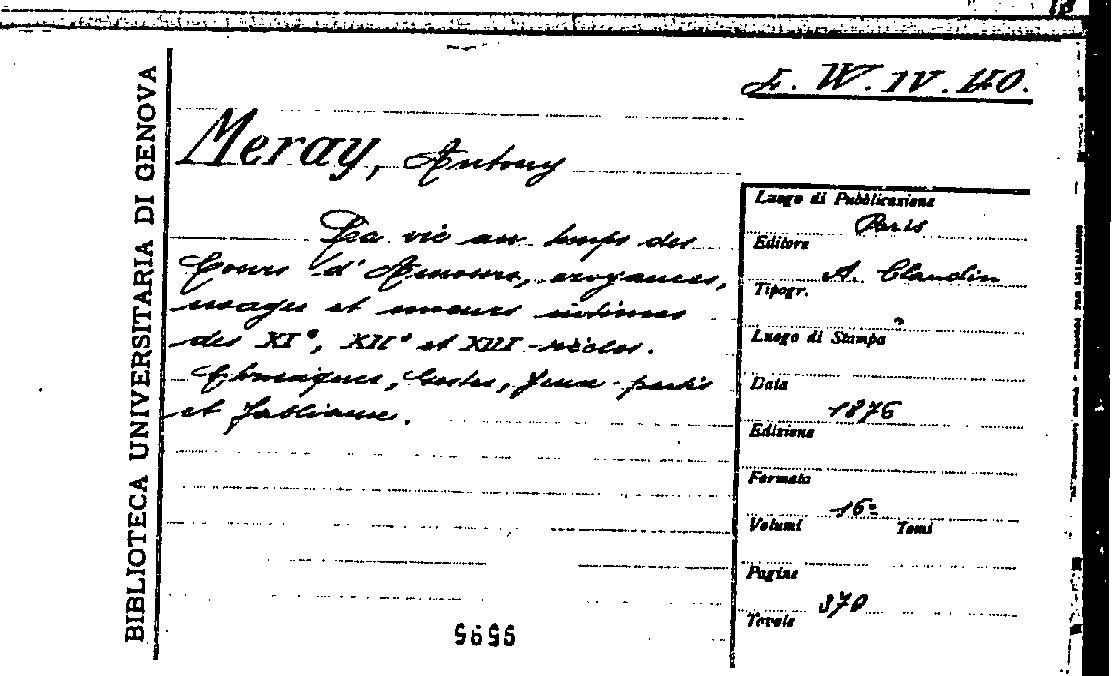 BIBLIOTECA UNIVERSITARIA DI GENOVA
4. W. IV. 40.
Meray, Antony
La vie au temps des
Cours d'Amours, croyances,
usages et moeurs intimes
des XIe, XIIe et XIII siècles.
Chroniques, Gestes, Jeux-partis
et Fabliaux.
Luogo di Pubblicazione
Paris
Editore
A. Claudin
Tipogr.
Luogo di Stampa
Data
1876
Edizione
Formato
16º
Volumi Tomi
Pagine
370
Tavole